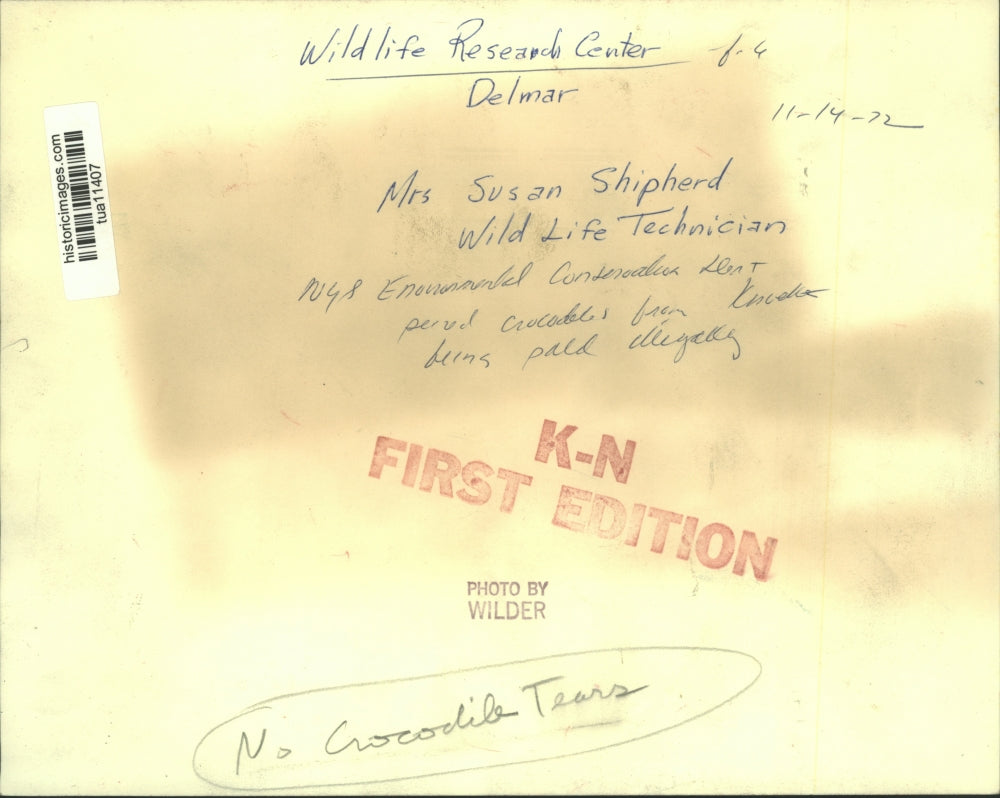 Wildlife Research Center f-6
Delmar
11-14-72
historicimages.com
tua11407
Mrs Susan Shipherd
Wild Life Technician
NYS Environmental Conservation Dept
crocodiles from
being illegally
K-N
FIRST EDITION
PHOTO BY
WILDER
No Crocodile Tears